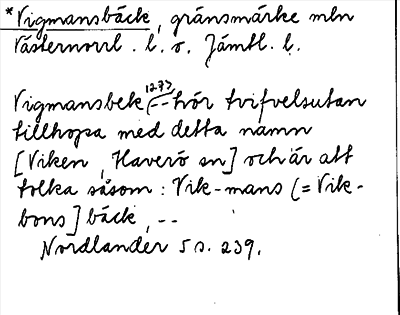 *Vigmansbäck, gränsmärke mln
Västernorrl. l. o. Jämtl. l.
Vigmansbek 1273 -- hör tvifvelsutan
tillhopa med detta namn
[Viken, Haverö sn] och är att
tolka såsom: Vik-mans (= Vik-
bons] bäck, --
Nordlander 5 s. 239.